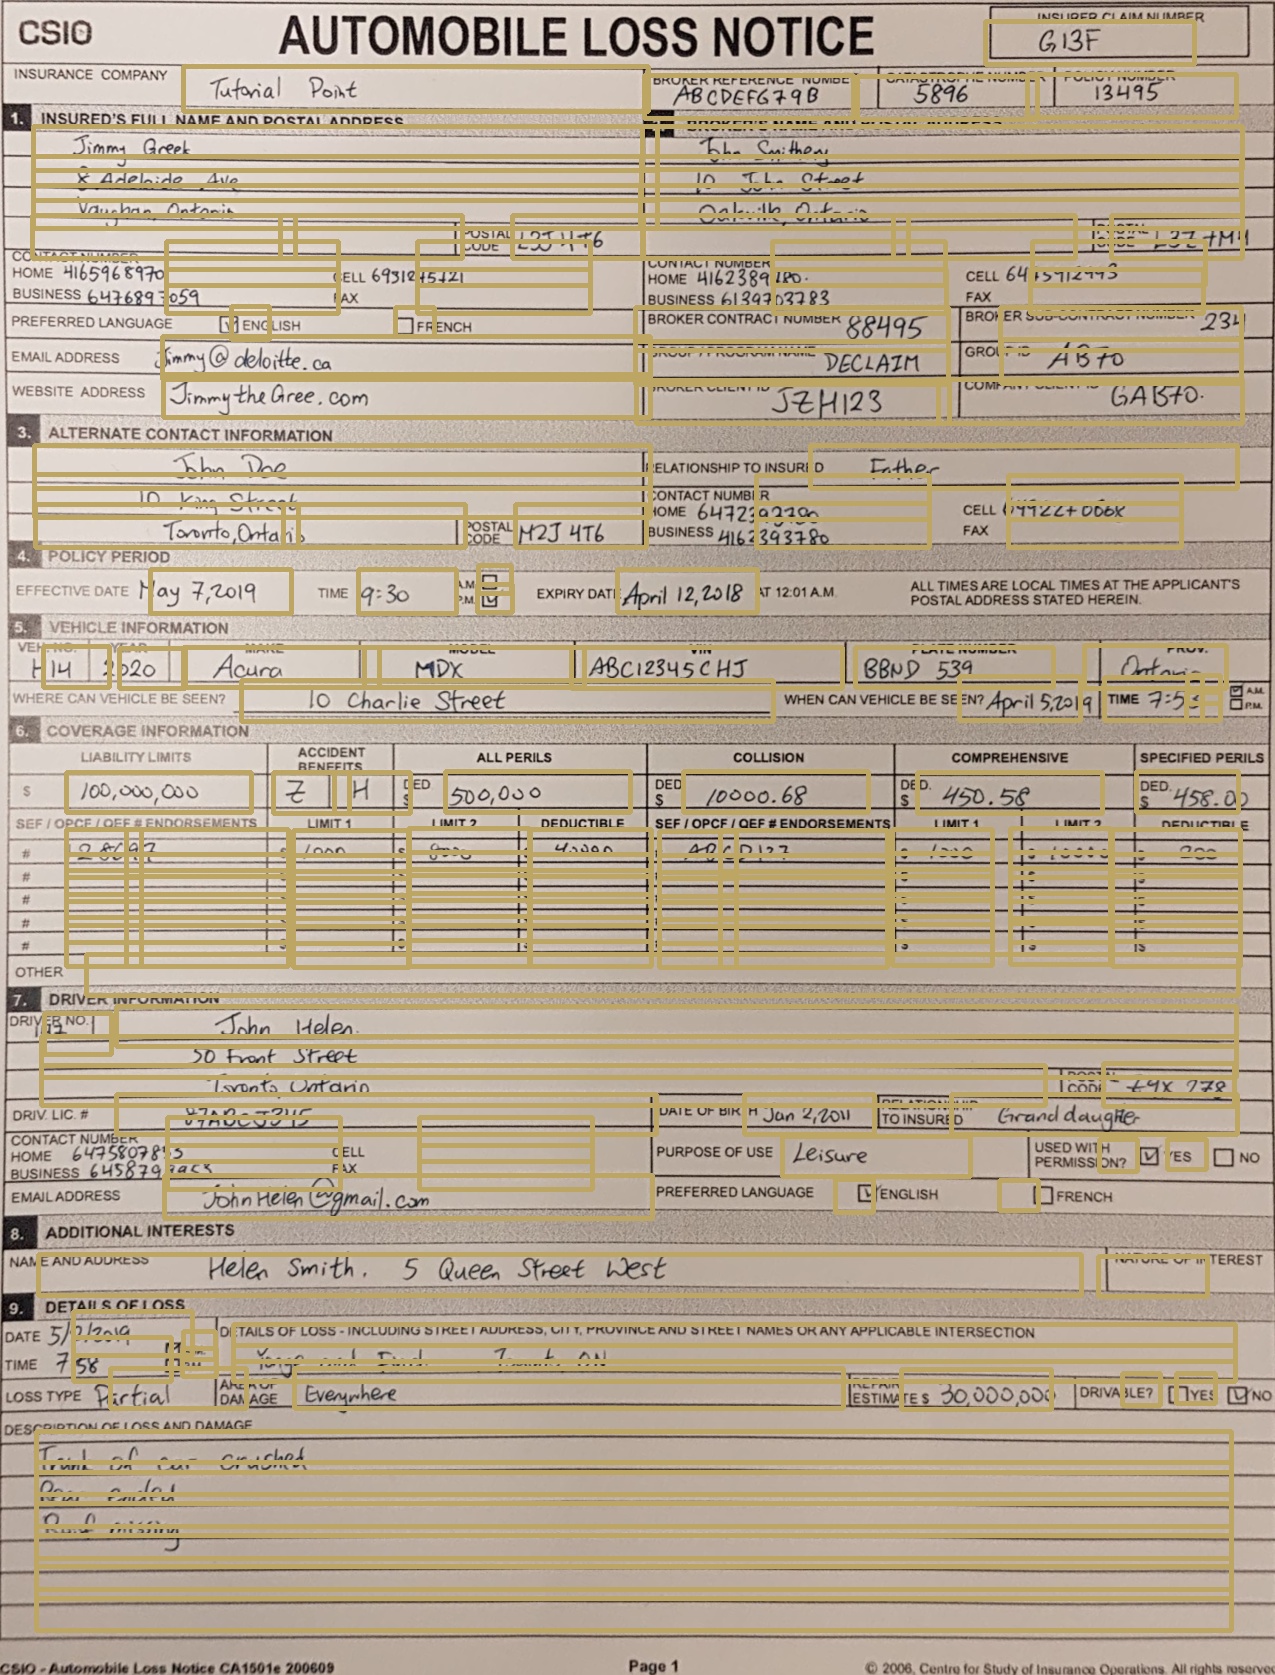 CSIO AUTOMOBILE LOSS NOTICE
INSURER CLAIM NUMBER
G13F
INSURANCE COMPANY Tutorial Point
BROKER REFERENCE NUMBER ABCDEFG79B
CATASTROPHE NUMBER 5896
POLICY NUMBER 13495
1. INSURED'S FULL NAME AND POSTAL ADDRESS
Jimmy Greek
8 Adelaide Ave
Vaughan, Ontario
POSTAL CODE
BROKER'S NAME AND
John Smithery
10 John Street
Oakville, Ontario
CODE
CONTACT NUMBER
HOME 4165968970 CELL
BUSINESS 6476897059 FAX
CONTACT NUMBER
HOME CELL
BUSINESS 6139703783 FAX
PREFERRED LANGUAGE ENGLISH FRENCH
BROKER CONTRACT NUMBER 88495
BROKER SUB-CONTRACT NUMBER 234
EMAIL ADDRESS Jimmy@deloitte.ca
GROUP / PROGRAM NAME DECLAIM
GROUP ID AB70
WEBSITE ADDRESS JimmytheGree.com
BROKER CLIENT ID JZH123
COMPANY CLIENT ID GAB70.
3. ALTERNATE CONTACT INFORMATION
John Doe
10 King Street
Toronto, Ontario
POSTAL CODE M2J 4T6
RELATIONSHIP TO INSURED Father
CONTACT NUMBER
HOME CELL
BUSINESS 4162393780 FAX
4. POLICY PERIOD
EFFECTIVE DATE May 7,2019 TIME 9:30 A.M. P.M. EXPIRY DATE April 12,2018 AT 12:01 A.M. ALL TIMES ARE LOCAL TIMES AT THE APPLICANT'S POSTAL ADDRESS STATED HEREIN.
5. VEHICLE INFORMATION
VEH. NO. YEAR MAKE MODEL VIN PLATE NUMBER PROV.
H14 2020 Acura MDX ABC12345CHJ BBND 539 Ontario
WHERE CAN VEHICLE BE SEEN? 10 Charlie Street WHEN CAN VEHICLE BE SEEN? April 5,2019 TIME A.M. P.M.
6. COVERAGE INFORMATION
LIABILITY LIMITS ACCIDENT BENEFITS ALL PERILS COLLISION COMPREHENSIVE SPECIFIED PERILS
$ 100,000,000 Z H DED. $ 500,000 DED. $ 10000.68 DED. $ 450.58 DED. $ 458.00
SEF / OPCF / QEF # ENDORSEMENTS LIMIT 1 LIMIT 2 DEDUCTIBLE SEF / OPCF / QEF # ENDORSEMENTS LIMIT 1 LIMIT 2 DEDUCTIBLE
# 1000
#
#
#
#
OTHER
7. DRIVER INFORMATION
DRIVER NO. John Helen.
50 Front Street
Toronto, Ontario
POSTAL CODE
DRIV. LIC. #
DATE OF BIRTH Jan 2,2011
RELATIONSHIP TO INSURED Granddaughter
CONTACT NUMBER
HOME CELL
BUSINESS FAX
PURPOSE OF USE Leisure
USED WITH PERMISSION? YES NO
EMAIL ADDRESS JohnHelen@gmail.com
PREFERRED LANGUAGE ENGLISH FRENCH
8. ADDITIONAL INTERESTS
NAME AND ADDRESS Helen Smith. 5 Queen Street West
NATURE OF INTEREST
9. DETAILS OF LOSS
DATE
TIME 7:58
DETAILS OF LOSS - INCLUDING STREET ADDRESS, CITY, PROVINCE AND STREET NAMES OR ANY APPLICABLE INTERSECTION
LOSS TYPE Partial AREA OF DAMAGE Everywhere REPAIR ESTIMATE $ 30,000,000 DRIVABLE? YES NO
DESCRIPTION OF LOSS AND DAMAGE
Trunk of car crushed
Rear ended
Roof missing
CSIO - Automobile Loss Notice CA1501e 200609 Page 1 © 2006, Centre for Study of Insurance Operations. All rights reserved